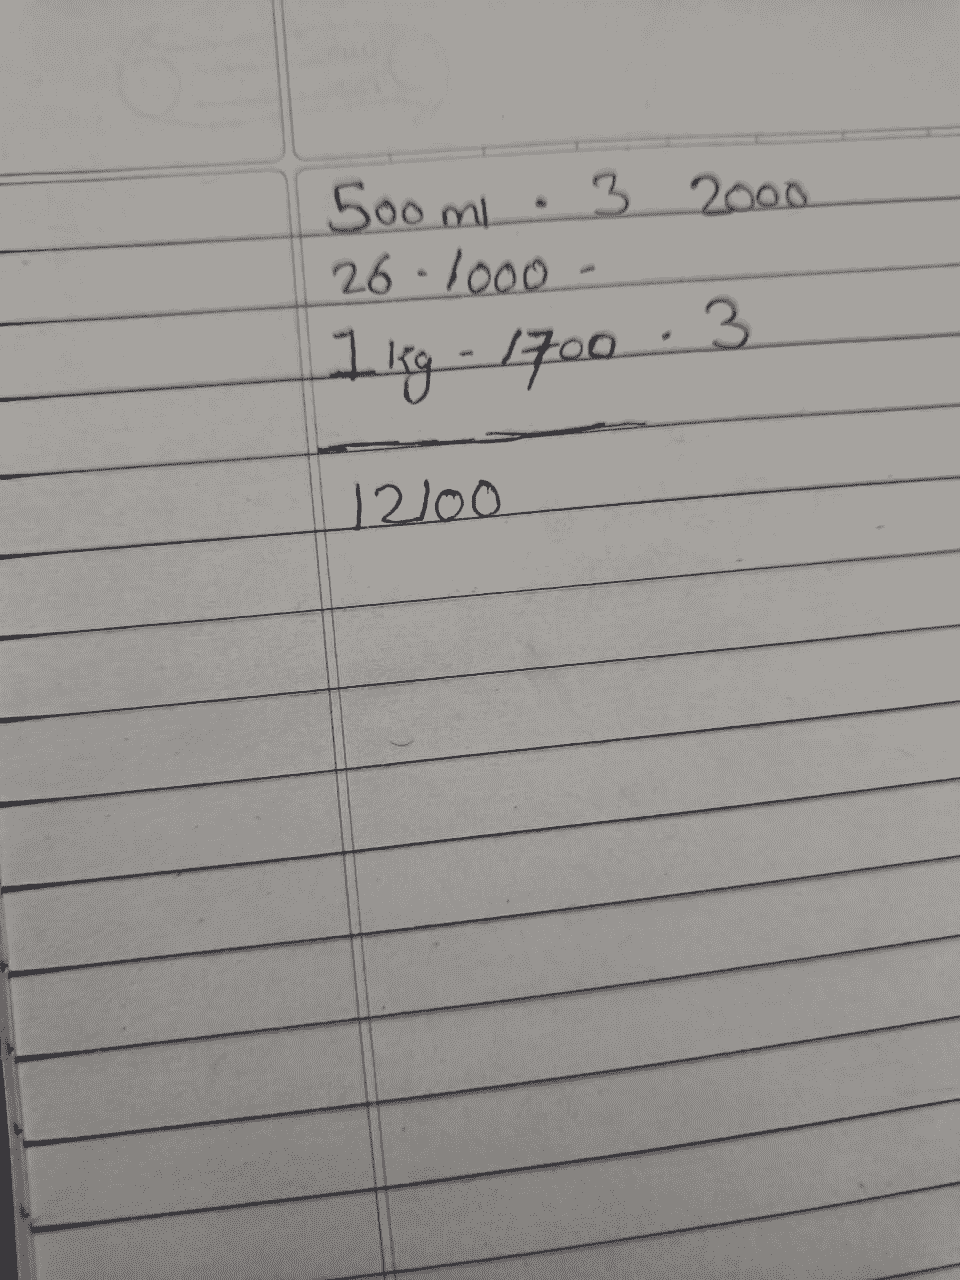 500 ml . 3 2000
26 . 1000 -
1 kg - 1700 . 3
12100